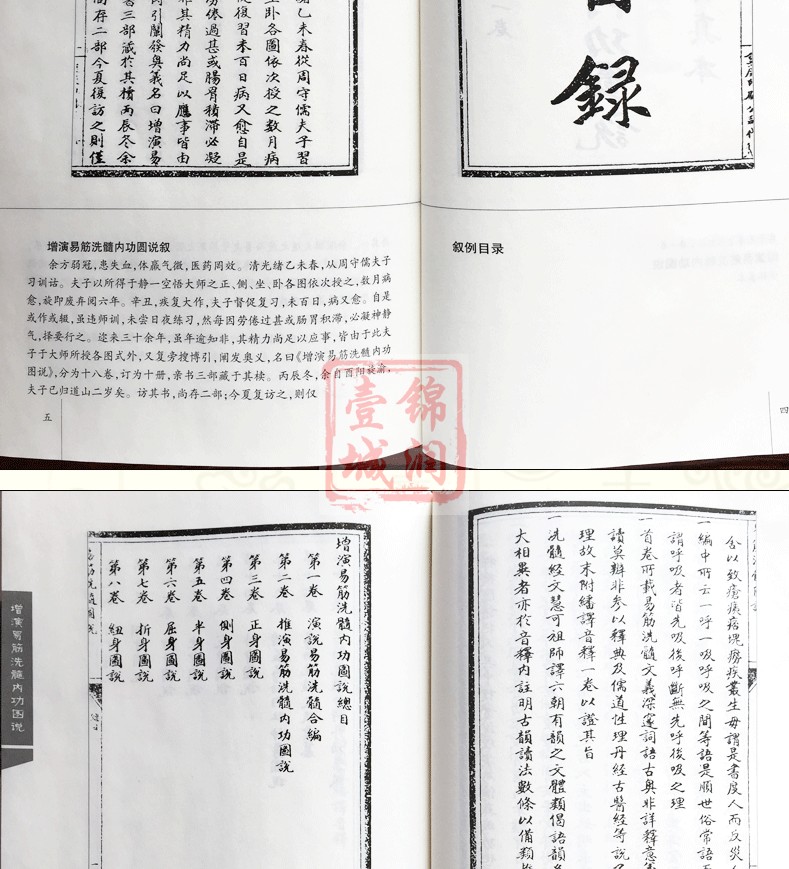 目
錄
乙未春從周守儒夫子習
卧各圖依次授之數月病
復習未百日病又愈自是
倦過甚或腸胃積滯必凝
其精力尚足以應事皆由
引闡發奧義名曰增演易
三部藏於其櫝丙辰冬余
存二部今夏復訪之則僅
叙例目录
四
增演易筋洗髓内功圆说叙
余方弱冠,患失血,体羸气微,医药罔效。清光绪乙未春,从周守儒夫子
习训诂。夫子以所得于静一空悟大师之正、侧、坐、卧各图依次授之,数月病
愈,旋即废弃阅六年。辛丑,疾复大作,夫子督促复习,未百日,病又愈。自是
或作或辍,虽违师训,未尝日夜练习,然每因劳倦过甚或肠胃积滞,必凝神静
气,择要行之。迩来三十余年,虽年逾知非,其精力尚足以应事,皆由于此夫
子于大师所授各图式外,又复旁搜博引,阐发奥义,名曰《增演易筋洗髓内功
图说》,分为十八卷,订为十册,亲书三部藏于其椟。丙辰冬,余自酉阳旋渝,
夫子已归道山二岁矣。访其书,尚存二部;今夏复访之,则仅
五
锦润
壹城
含以致瘡痍痞塊癆疾叢生毋謂是書度人而反災人
一編中所云一呼一吸呼吸之間等語是順世俗常語
謂呼吸者皆先吸後呼斷無先呼後吸之理
一首卷所載易筋洗髓文義深邃詞語古奧非詳釋意
讀莫辨非參以釋典及儒道性理丹經古醫經等說
理故末附繙譯音釋一卷以證其旨
一洗髓經文慧可祖師譯六朝有韻之文體類偈語韻
大相異者亦於音釋內註明古韻讀法數條以備類推
增演易筋洗髓內功圖說總目
第一卷 演說易筋洗髓合編
第二卷 推演易筋洗髓內功圖說
第三卷 正身圖說
第四卷 側身圖說
第五卷 半身圖說
第六卷 屈身圖說
第七卷 折身圖說
第八卷 紐身圖說
易筋洗髓圖說
增演易筋洗髓内功图说